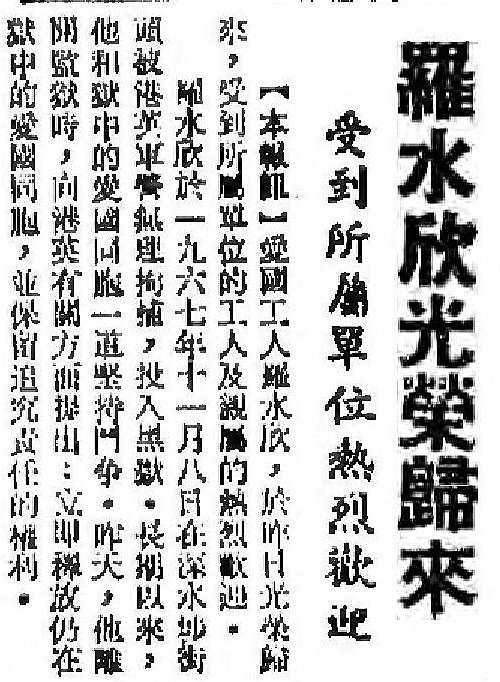 羅水欣光榮歸來
受到所屬單位熱烈歡迎
【本報訊】愛國工人羅水欣，於昨日光榮歸
來，受到所屬單位的工人及親屬的熱烈歡迎。
羅水欣於一九六七年十一月八日在深水埗街
頭被港英軍警無理拘捕，投入黑獄。長期以來，
他和獄中的愛國同胞一道堅持鬥爭。昨天，他離
開監獄時，向港英有關方面提出：立即釋放仍在
獄中的愛國同胞，並保留追究責任的權利。